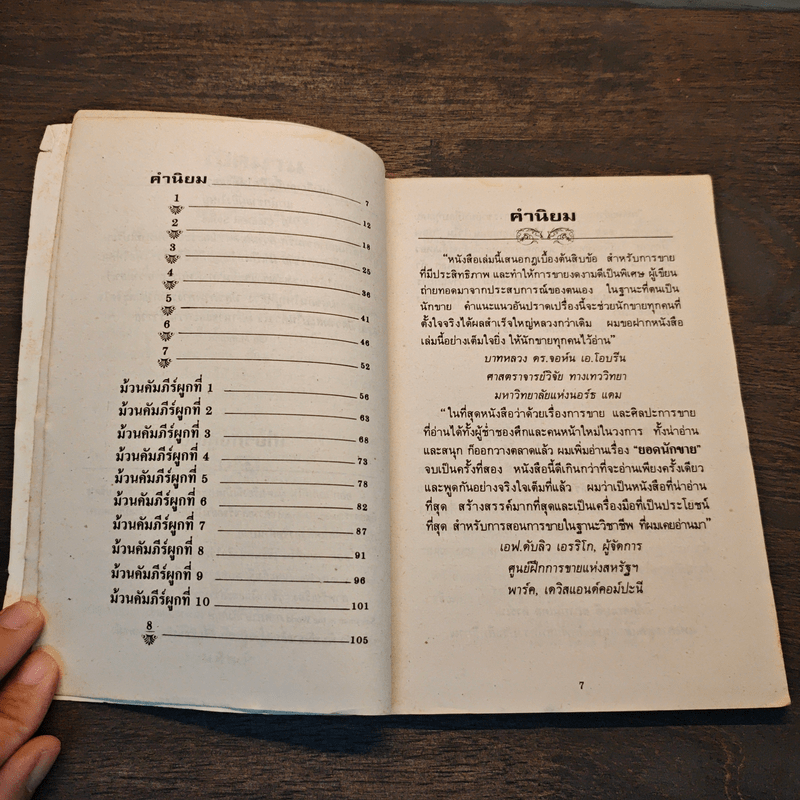 คำนิยม 7
1 12
2 18
3 25
4 36
5 41
6 46
7 52
ม้วนคัมภีร์ผูกที่ 1 56
ม้วนคัมภีร์ผูกที่ 2 63
ม้วนคัมภีร์ผูกที่ 3 68
ม้วนคัมภีร์ผูกที่ 4 73
ม้วนคัมภีร์ผูกที่ 5 78
ม้วนคัมภีร์ผูกที่ 6 82
ม้วนคัมภีร์ผูกที่ 7 87
ม้วนคัมภีร์ผูกที่ 8 91
ม้วนคัมภีร์ผูกที่ 9 96
ม้วนคัมภีร์ผูกที่ 10 101
8 105
คำนิยม
“หนังสือเล่มนี้เสนอกฎเบื้องต้นสิบข้อ สำหรับการขาย
ที่มีประสิทธิภาพ และทำให้การขายงดงามดีเป็นพิเศษ ผู้เขียน
ถ่ายทอดมาจากประสบการณ์ของตนเอง ในฐานะที่ตนเป็น
นักขาย คำแนะแนวอันปราดเปรื่องนี้จะช่วยนักขายทุกคนที่
ตั้งใจจริงได้ผลสำเร็จใหญ่หลวงกว่าเดิม ผมขอฝากหนังสือ
เล่มนี้อย่างเต็มใจยิ่ง ให้นักขายทุกคนไว้อ่าน”
บาทหลวง ดร.จอห์น เอ.โอบรีน
ศาสตราจารย์วิจัย ทางเทววิทยา
มหาวิทยาลัยแห่งนอร์ธ แดม
“ในที่สุดหนังสือว่าด้วยเรื่องการขาย และศิลปะการขาย
ที่อ่านได้ทั้งผู้ช่ำชองศึกและคนหน้าใหม่ในวงการ ทั้งน่าอ่าน
และสนุก ก็ออกวางตลาดแล้ว ผมเพิ่มอ่านเรื่อง "ยอดนักขาย"
จบเป็นครั้งที่สอง หนังสือนี้ดีเกินกว่าที่จะอ่านเพียงครั้งเดียว
และพูดกันอย่างจริงใจเต็มที่แล้ว ผมว่าเป็นหนังสือที่น่าอ่าน
ที่สุด สร้างสรรค์มากที่สุดและเป็นเครื่องมือที่เป็นประโยชน์
ที่สุด สำหรับการสอนการขายในฐานะวิชาชีพ ที่ผมเคยอ่านมา”
เอฟ.ดับลิว เอรริโก, ผู้จัดการ
ศูนย์ฝึกการขายแห่งสหรัฐฯ
พาร์ค, เดวิสแอนด์คอม์ปะนี
7